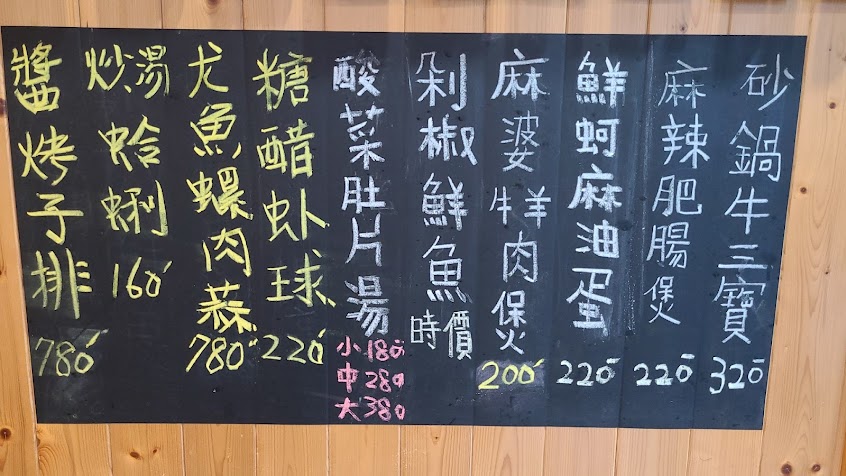 砂鍋牛三寶 320
麻辣肥腸煲 220
鮮蚵麻油蛋 220
麻婆牛羊肉煲 200
剁椒鮮魚 時價
酸菜肚片湯
小180
中280
大380
糖醋虾球 220
龙魚螺肉蒜 780
炒.湯蛤蜊 160
醬烤子排 780